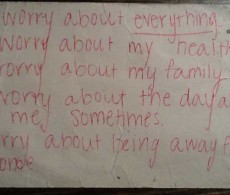 worry about everything
worry about my health
worry about my family
worry about the day a
me, sometimes.
rry about being away f